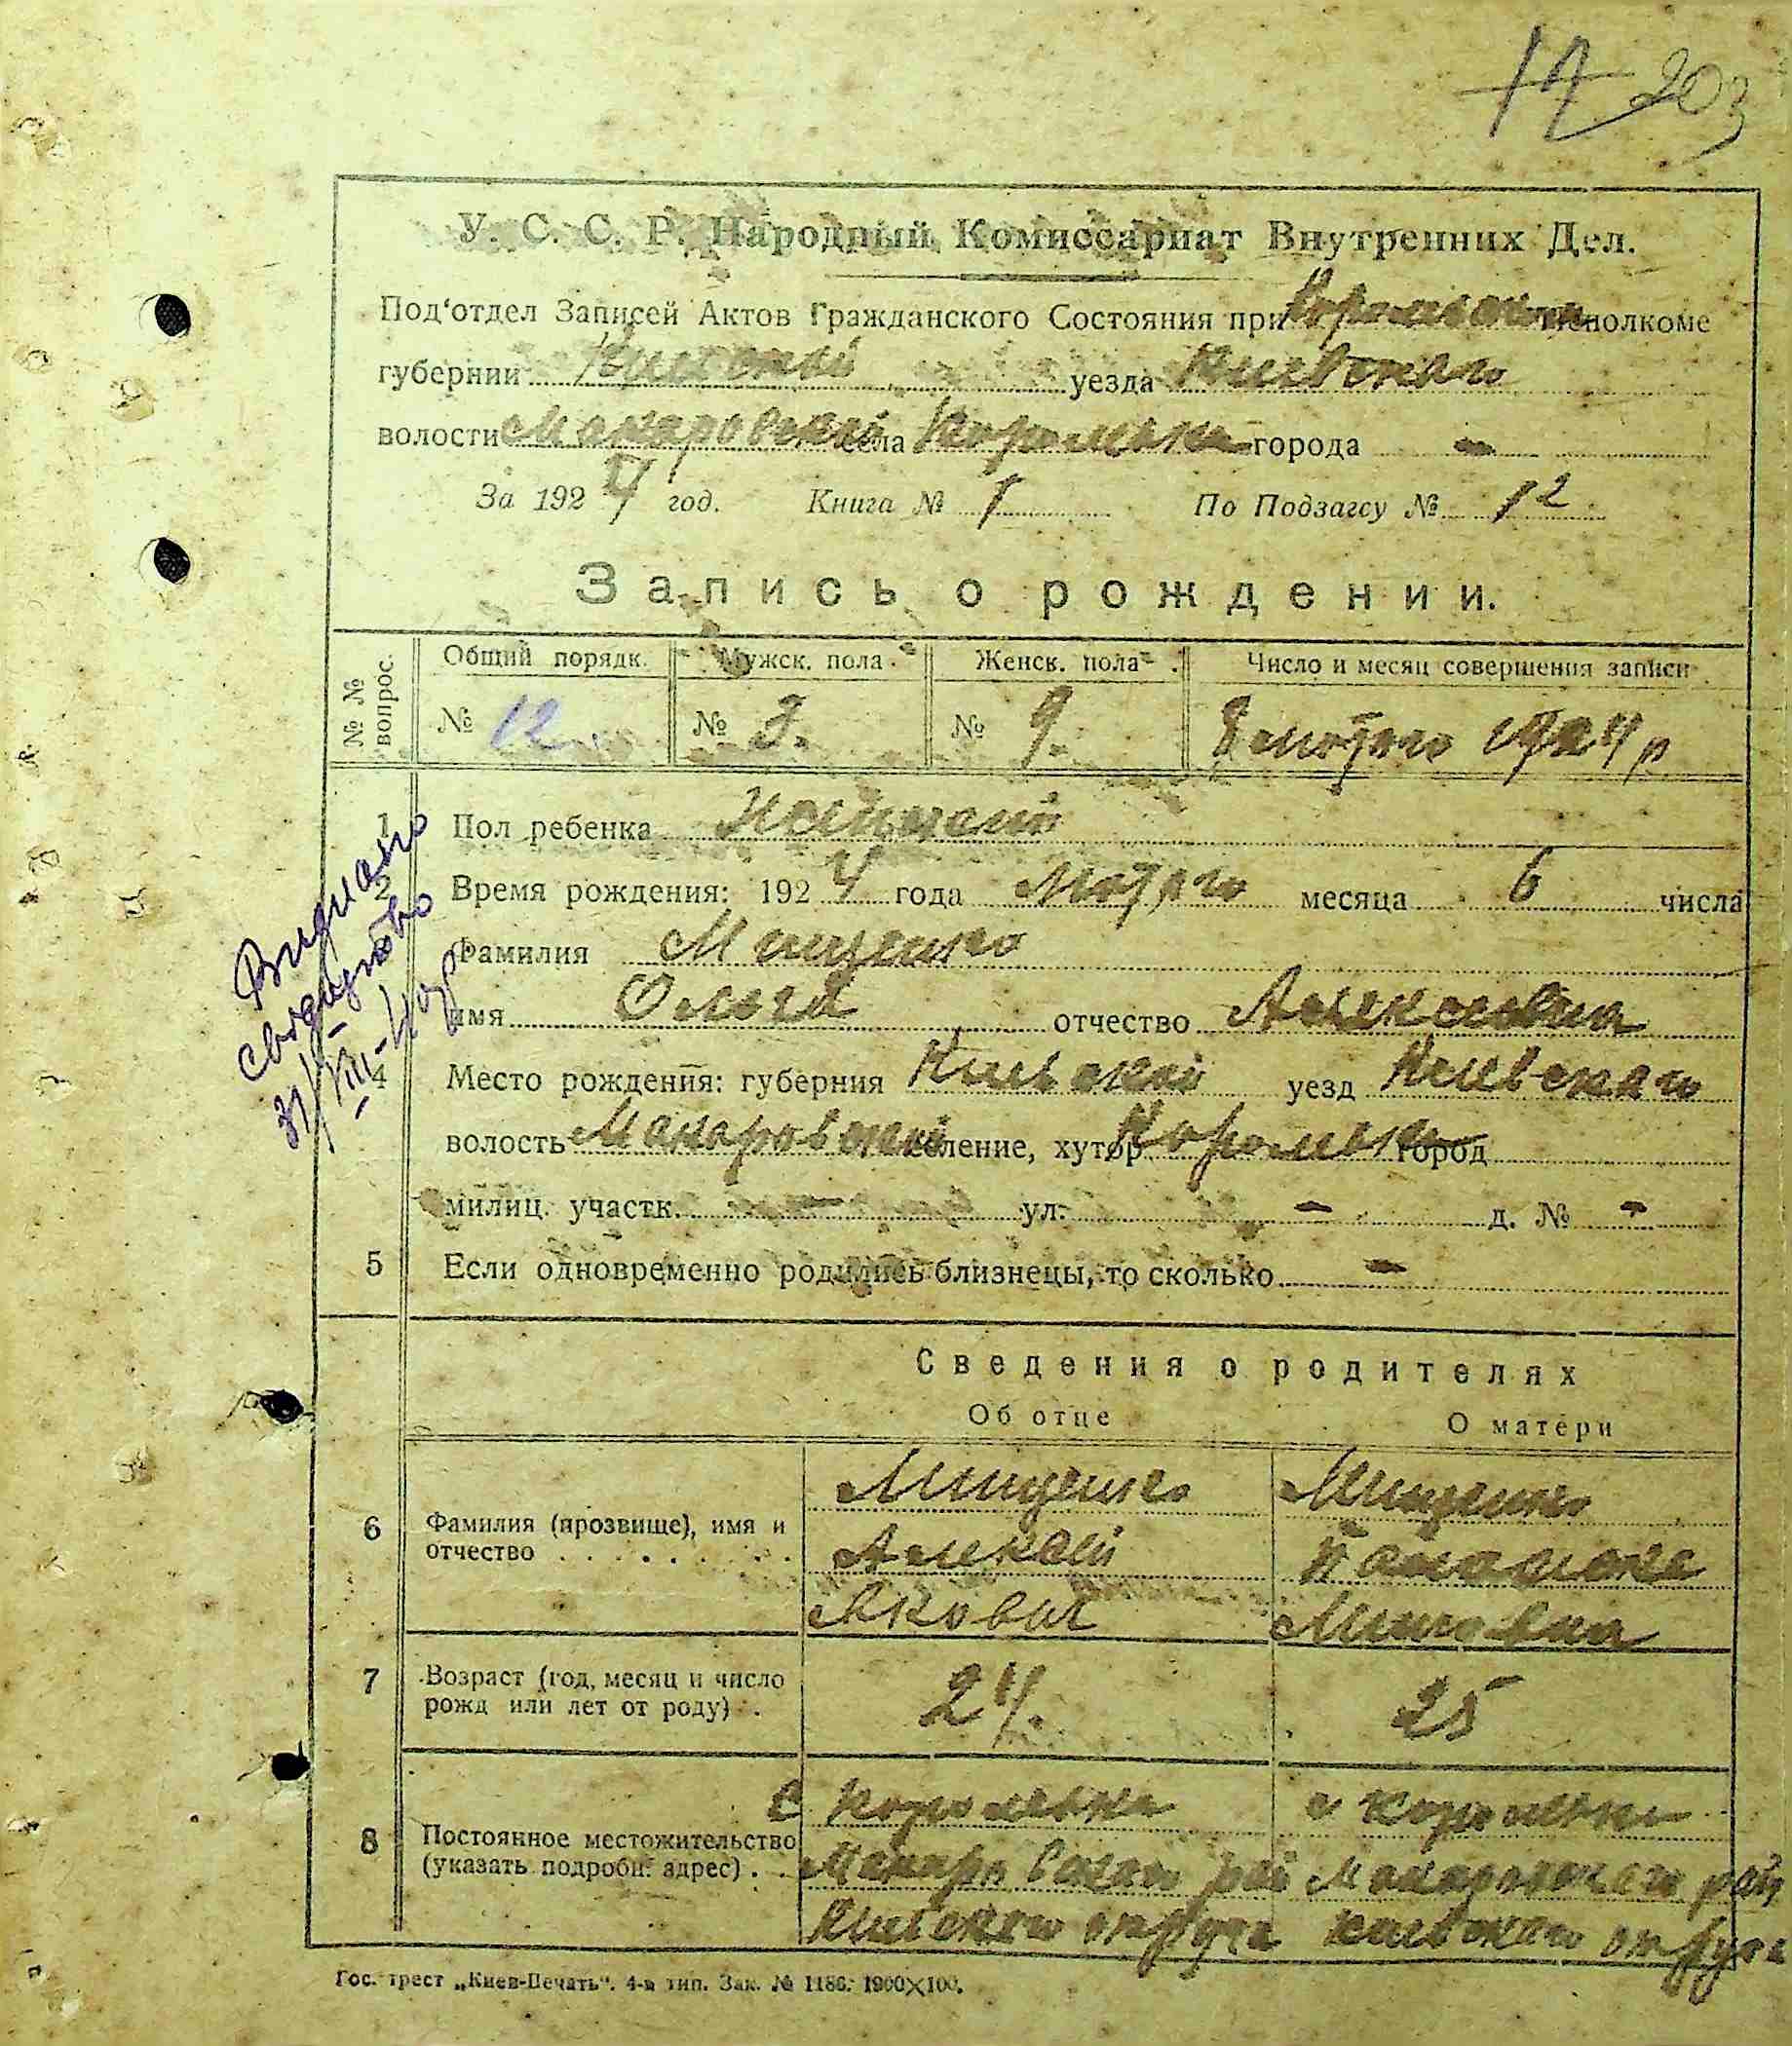 17 203
У. С. С. Р. Народный Комиссариат Внутренних Дел.
Под‘отдел Записей Актов Гражданского Состояния при исполкоме
губернии Киевской уезда Киевского
волости Макаровской села Королевка города -
За 1924 год. Книга № 1 По Подзагсу № 12
Запись о рождении.
№ № вопрос. Общий порядк. Мужск. пола Женск. пола Число и месяц совершения записи
№ 12 № 3. № 9. 8 лютого 1924 р
1 Пол ребенка
2 Время рождения: 1924 года Лютого месяца 6 числа
Фамилия Мищенко
имя Ольга отчество Алексеевна
4 Место рождения: губерния Киевской уезд Киевского
волость Макаровской селение, хутор город
милиц. участк. - ул. - д. № -
5 Если одновременно родились близнецы, то сколько -
Видиано
свидутво
31/VIII-40р
Сведения о родителях
Об отце О матери
6 Фамилия (прозвище), имя и отчество Мищенко Мищенко
Алексей
Якович
7 Возраст (год, месяц и число рожд или лет от роду) 24. 25
8 Постоянное местожительство (указать подробн. адрес) С Королевка с Королевка
Макаровского рай Макаровского рай
Киевского округа Киевского округа
Гос. трест „Киев-Печать“. 4-я тип. Зак. № 1186. 1900×100.